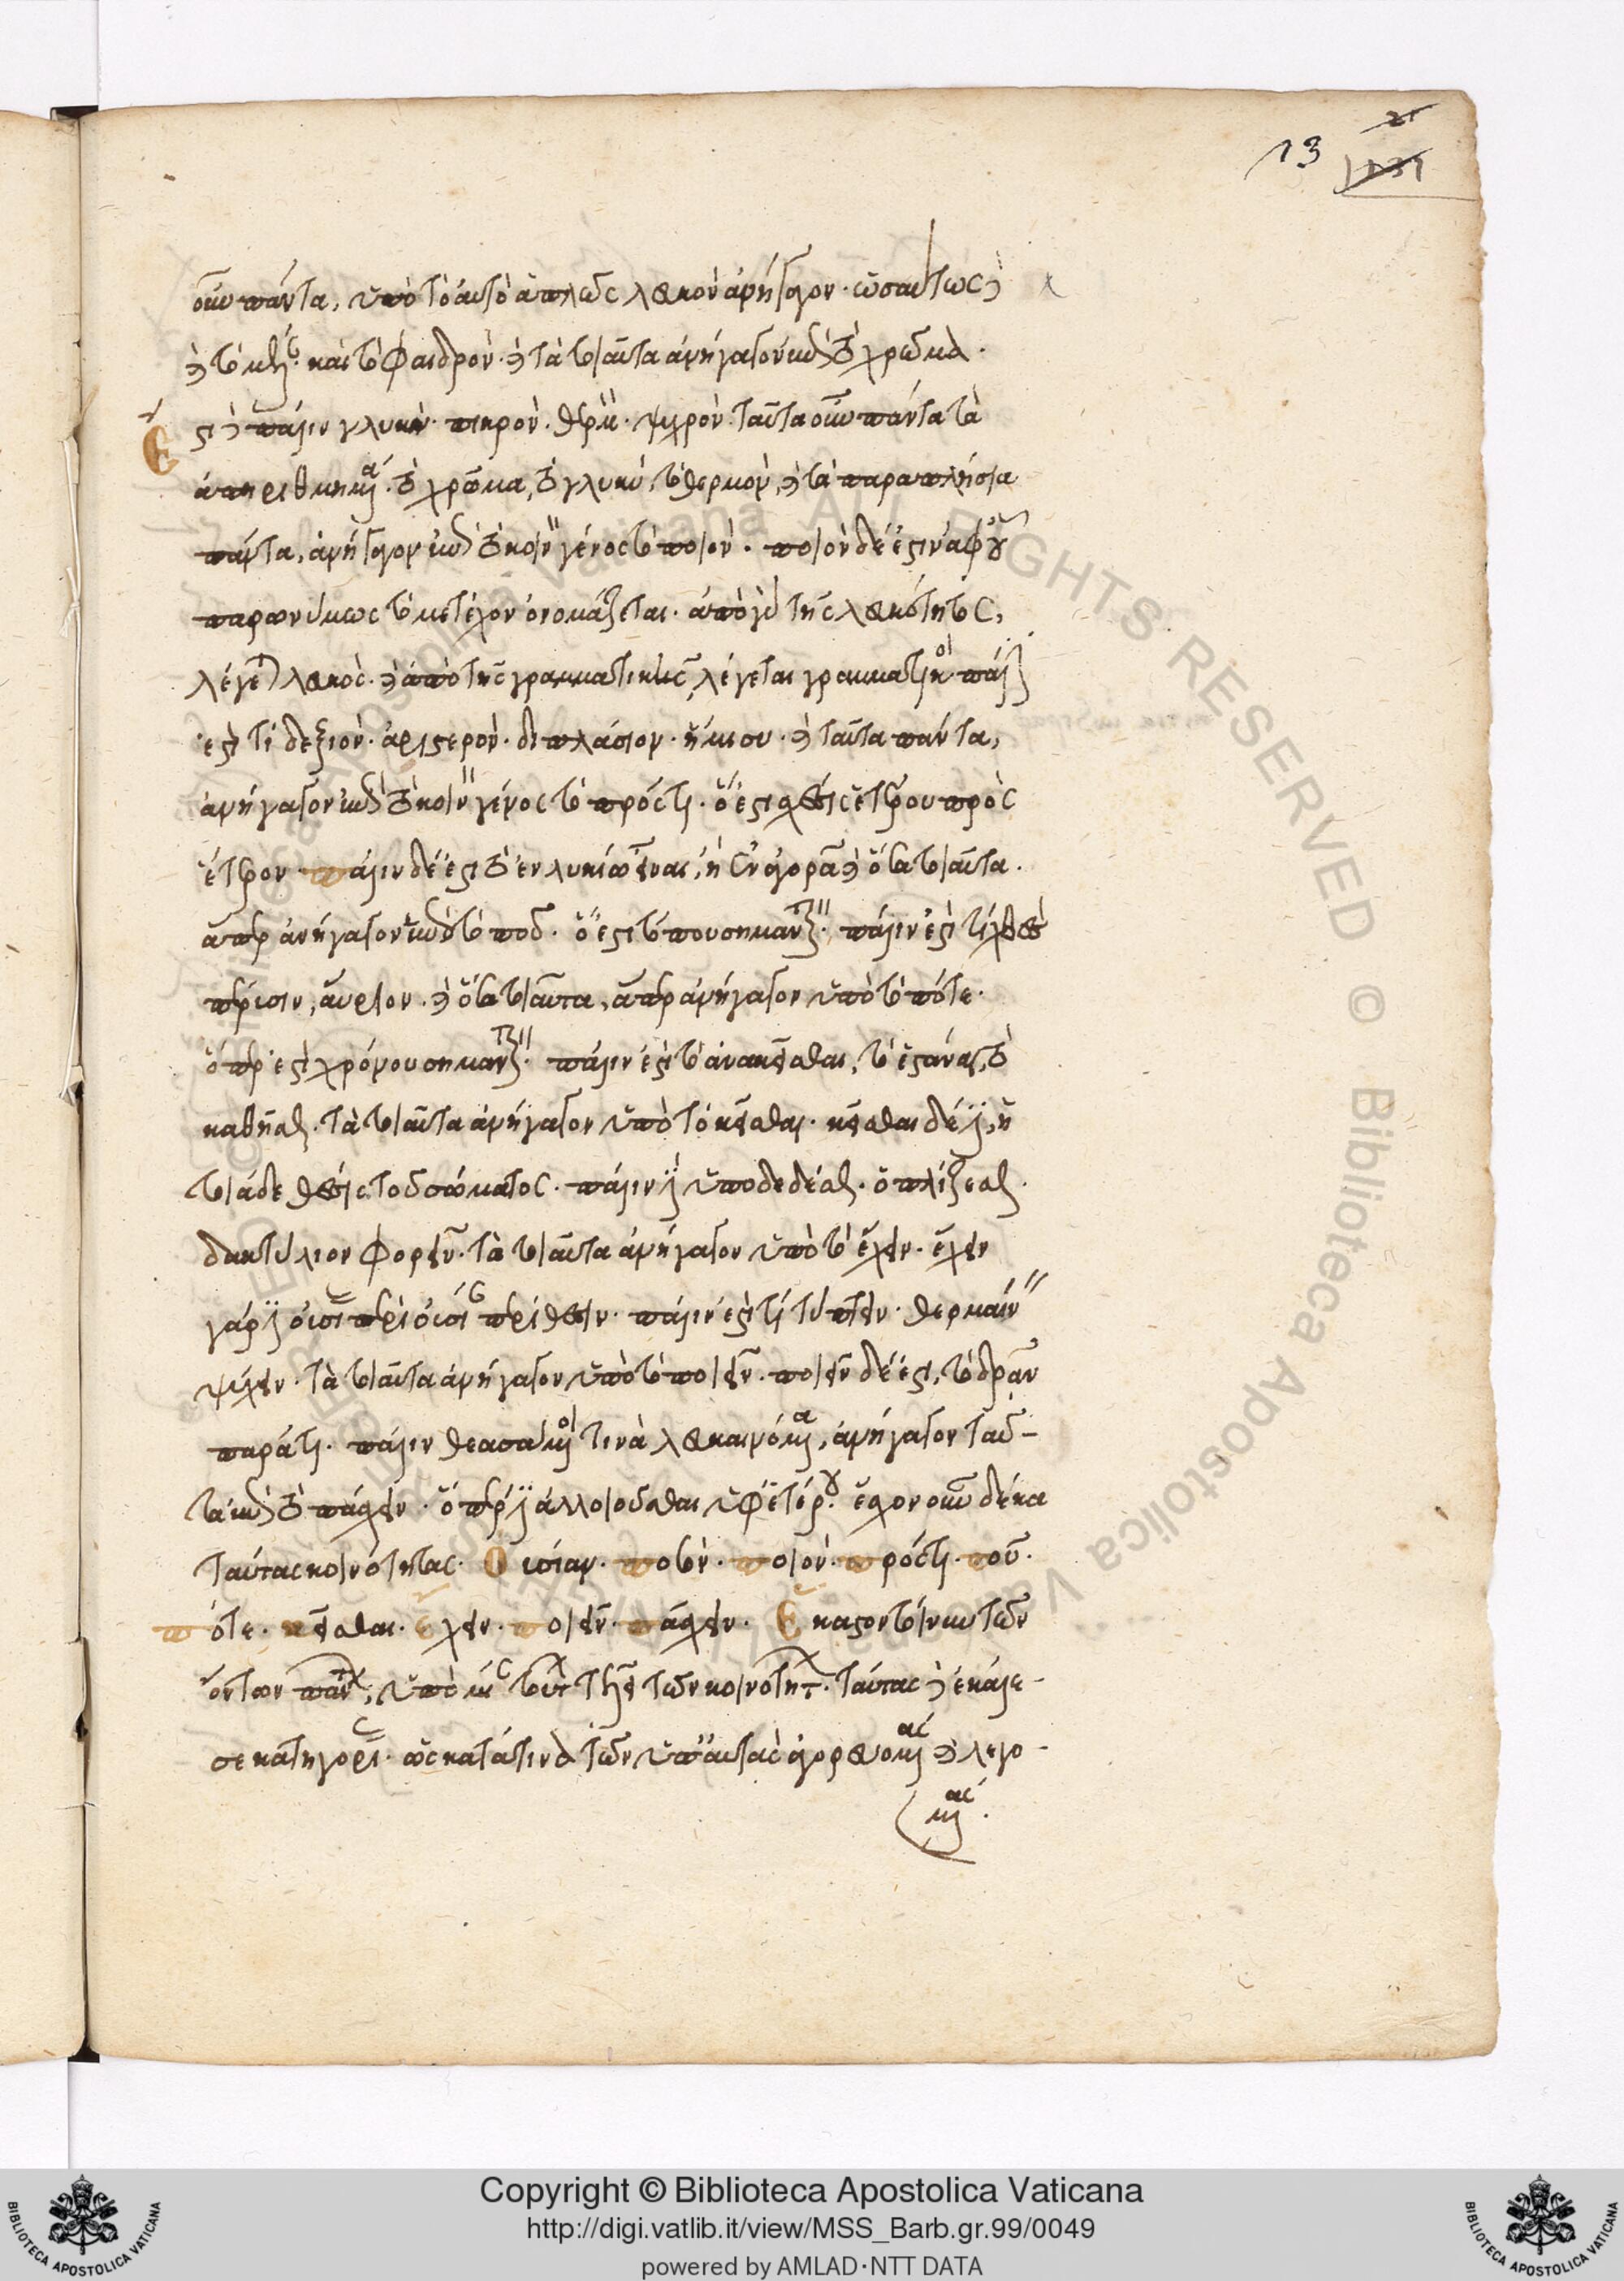 13
οὖν πάντα, ὑπὸ τὸ αὐτὸ ἁπλῶς λευκὸν ἀνήγαγον. ὡσαύτως δὲ
καὶ τὸ μέλαν. καὶ τὸ φαιδρὸν. καὶ τὰ τοιαῦτα ἀνήγαγον ὑπὸ τὸ χρῶμα.
Ἔστι δὲ πάλιν γλυκὺ. πικρὸν. θερμὸν. ψυχρὸν. ταῦτα οὖν πάντα τὰ
ἀπηριθμημένα. τὸ χρῶμα, τὸ γλυκὺ, τὸ θερμὸν, καὶ τὰ παραπλήσια
πάντα, ἀνήγαγον ὑπὸ τὸ κοινὸν γένος τὸ ποιὸν. ποιὸν δέ ἐστιν ἀφ' οὗ
παρωνύμως τὸ μετέχον ὀνομάζεται. ἀπὸ γὰρ τῆς λευκότητος,
λέγεται λευκὸς. καὶ ἀπὸ τῆς γραμματικῆς, λέγεται γραμματικὸς. πάλιν
ἐστί τι δεξιὸν. ἀριστερὸν. διπλάσιον. ἥμισυ. καὶ ταῦτα πάντα,
ἀνήγαγον ὑπὸ τὸ κοινὸν γένος τὸ πρός τι. ὅ ἐστι σχέσις ἑτέρου πρὸς
ἕτερον. πάλιν δέ ἐστι τὸ ἐν λυκίῳ εἶναι, ἢ ἐν ἀγορᾷ καὶ ὅσα τοιαῦτα.
ἅπερ ἀνήγαγον ὑπὸ τὸ ποῦ. ὅ ἐστι τόπου σημαντικόν. πάλιν ἐστὶ τὶ χθὲς
πέρυσιν, αὔριον. καὶ ὅσα τοιαῦτα, ἅπερ ἀνήγαγον ὑπὸ τὸ πότε.
ὅπερ ἐστὶ χρόνου σημαντικόν. πάλιν ἐστὶ τὸ ἀνακεῖσθαι, τὸ ἑστάναι, τὸ
καθῆσθαι. τὰ τοιαῦτα ἀνήγαγον ὑπὸ τὸ κεῖσθαι. κεῖσθαι δέ ἐστιν, ἡ
τοιάδε θέσις τοῦ σώματος. πάλιν ἐστὶν ὑποδεδέσθαι. ὁπλίζεσθαι.
δακτύλιον φορεῖν. τὰ τοιαῦτα ἀνήγαγον ὑπὸ τὸ ἔχειν. ἔχειν
γάρ ἐστιν οὐσίας περὶ οὐσίαν περίθεσιν. πάλιν ἐστὶ τὶ τύπτειν. θερμαίνειν
ψύχειν. τὰ τοιαῦτα ἀνήγαγον ὑπὸ τὸ ποιεῖν. ποιεῖν δέ ἐστι, τὸ δρᾶν
παρά τι. πάλιν θεασάμενοι τινὰ λευκαινόμενα, ἀνήγαγον ταῦ-
τα ὑπὸ τὸ πάσχειν. ὅπερ ἐστὶν ἀλλοιοῦσθαι ὑφ' ἑτέρου. ἔσχον οὖν δέκα
ταύτας κοινότητας. Οὐσίαν. ποσὸν. ποιὸν. πρός τι. ποῦ.
πότε. κεῖσθαι. ἔχειν. ποιεῖν. πάσχειν. Ἕκαστον τοίνυν τῶν
ὄντων πάντων, ὑπὸ μίαν τούτων τελεῖ τῶν κοινοτήτων. ταύτας δὲ ἐκάλε-
σε κατηγορίας. ὡς κατά τινα τῶν ὑπ' αὐτὰς ἀγορευομένας καὶ λεγο-
μένας.
Copyright © Biblioteca Apostolica Vaticana
http://digi.vatlib.it/view/MSS_Barb.gr.99/0049
powered by AMLAD·NTT DATA